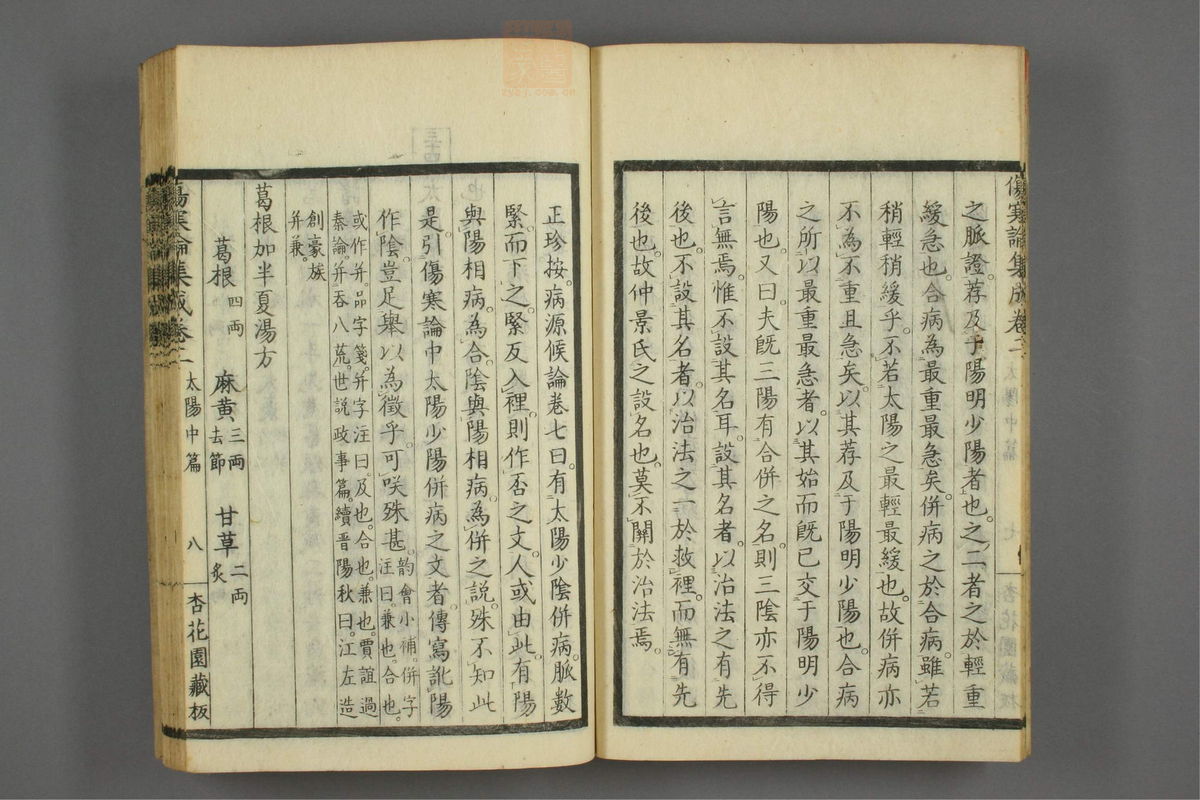 傷寒論集成卷二
之脈證荐及于陽明少陽者也之二者之於輕重
緩急也合病為最重最急矣併病之於合病雖若
稍輕稍緩乎不若太陽之最輕最緩也故併病亦
不為不重且急矣以其荐及于陽明少陽也合病
之所以最重最急者以其始而既已交于陽明少
陽也又曰夫既三陽有合併之名則三陰亦不得
言無焉惟不設其名耳設其名者以治法之有先
後也不設其名者以治法之一於救裡而無有先
後也故仲景氏之設名也莫不關於治法焉
正珍按病源候論卷七曰有太陽少陰併病脈數
緊而下之緊反入裡則作否之文人或由此有陽
與陽相病為合陰與陽相病為併之說殊不知此
是引傷寒論中太陽少陽併病之文者傳寫訛陽
作陰豈足舉以為徵乎可咲殊甚韵會小補併字注曰兼也合也
或作并品字箋并字注曰及也合也兼也賈誼過
秦論并吞八荒世說政事篇續晋陽秋曰江左造
創豪族
并兼
葛根加半夏湯方
葛根四両 麻黄三両去節 甘草二両炙
傷寒論集成卷二 太陽中篇 八 杏花園藏板